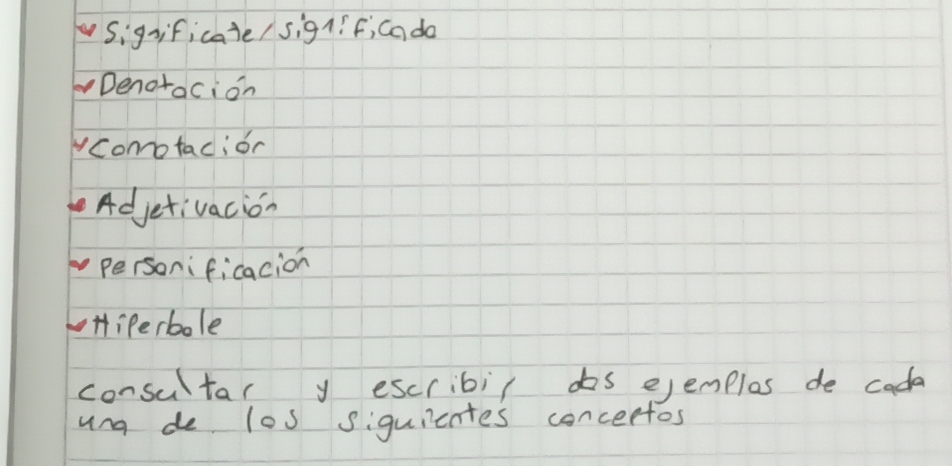 Significate/significado
Denotación
Connotación
Adjetivación
Personificación
Hiperbole
consultar y escribir dos ejemplos de cada
una de los siguientes conceptos